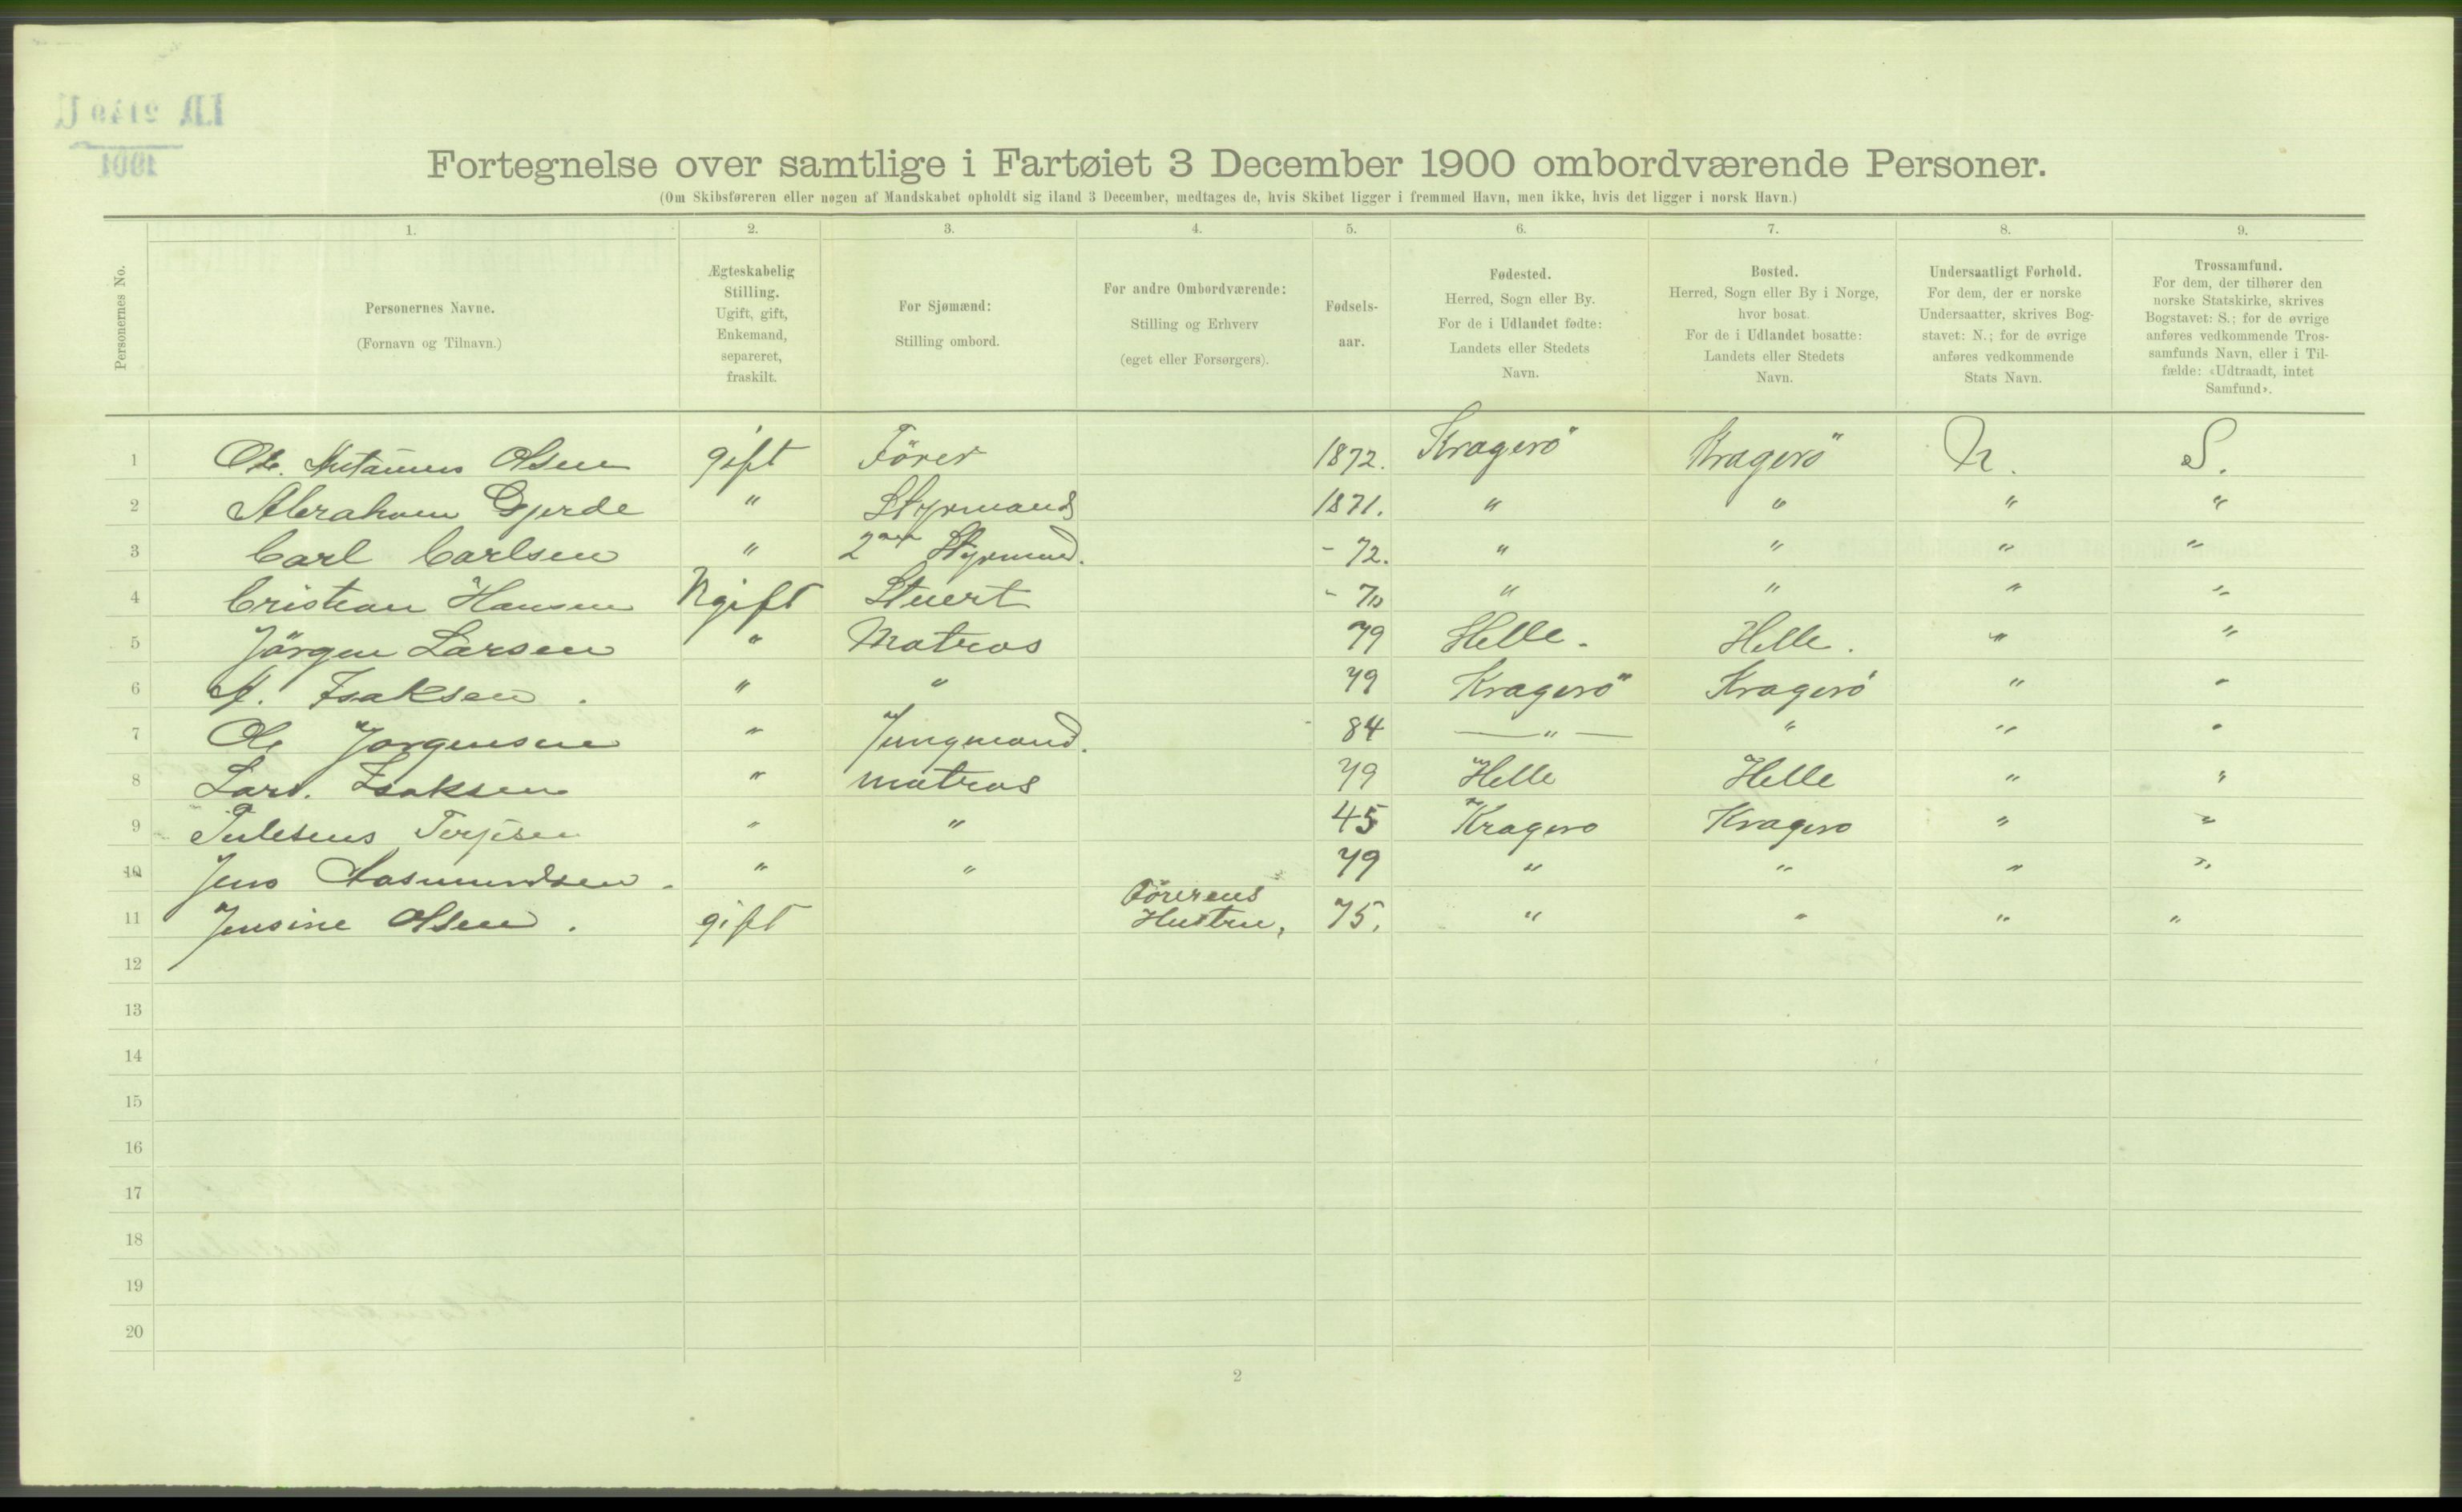 Fortegnelse over samtlige i Fartøiet 3 December 1900 ombordværende Personer.
(Om Skibsføreren eller nogen af Mandskabet opholdt sig iland 3 December, medtages de, hvis Skibet ligger i fremmed Havn, men ikke, hvis det ligger i norsk Havn.)
Personernes No.
1. 2. 3. 4. 5. 6. 7. 8. 9.
Personernes Navne.
(Fornavn og Tilnavn.)
Ægteskabelig
Stilling.
Ugift, gift,
Enkemand,
separeret,
fraskilt.
For Sjømænd:
Stilling ombord.
For andre Ombordværende:
Stilling og Erhverv
(eget eller Forsørgers).
Fødsels-
aar.
Fødested.
Herred, Sogn eller By.
For de i Udlandet fødte:
Landets eller Stedets
Navn.
Bosted.
Herred, Sogn eller By i Norge,
hvor bosat.
For de i Udlandet bosatte:
Landets eller Stedets
Navn.
Undersaatligt Forhold.
For dem, der er norske
Undersaatter, skrives Bog-
stavet: N.; for de øvrige
anføres vedkommende
Stats Navn.
Trossamfund.
For dem, der tilhører den
norske Statskirke, skrives
Bogstavet: S.; for de øvrige
anføres vedkommende Tros-
samfunds Navn, eller i Til-
fælde: «Udtraadt, intet
Samfund».
1 Olsen gift Förer 1872. Kragerö Kragerö N. S.
2 Abraham Gjerde " Styrmand 1871. " " " "
3 Carl Carlsen " 2den Styrmand. - 72. " " " "
4 Cristian Hansen Ugift Stuert - 70 " " " "
5 Jörgen Larsen " Matros 79 Helle. Helle. " "
6 Isaksen. " " 79 Kragerö Kragerö " "
7 Ole Jorgensen " Jungmand. 84 — " — " " "
8 Lars. Isaksen " matros 79 Helle Helle " "
9 Terjesen " " 45 Kragero Kragero " "
10 Jens Aasmundsen. " " 79 " " " "
11 Jensine Olsen. gift Förerens Hustru, 75. " " " "
12
13
14
15
16
17
18
19
20
2